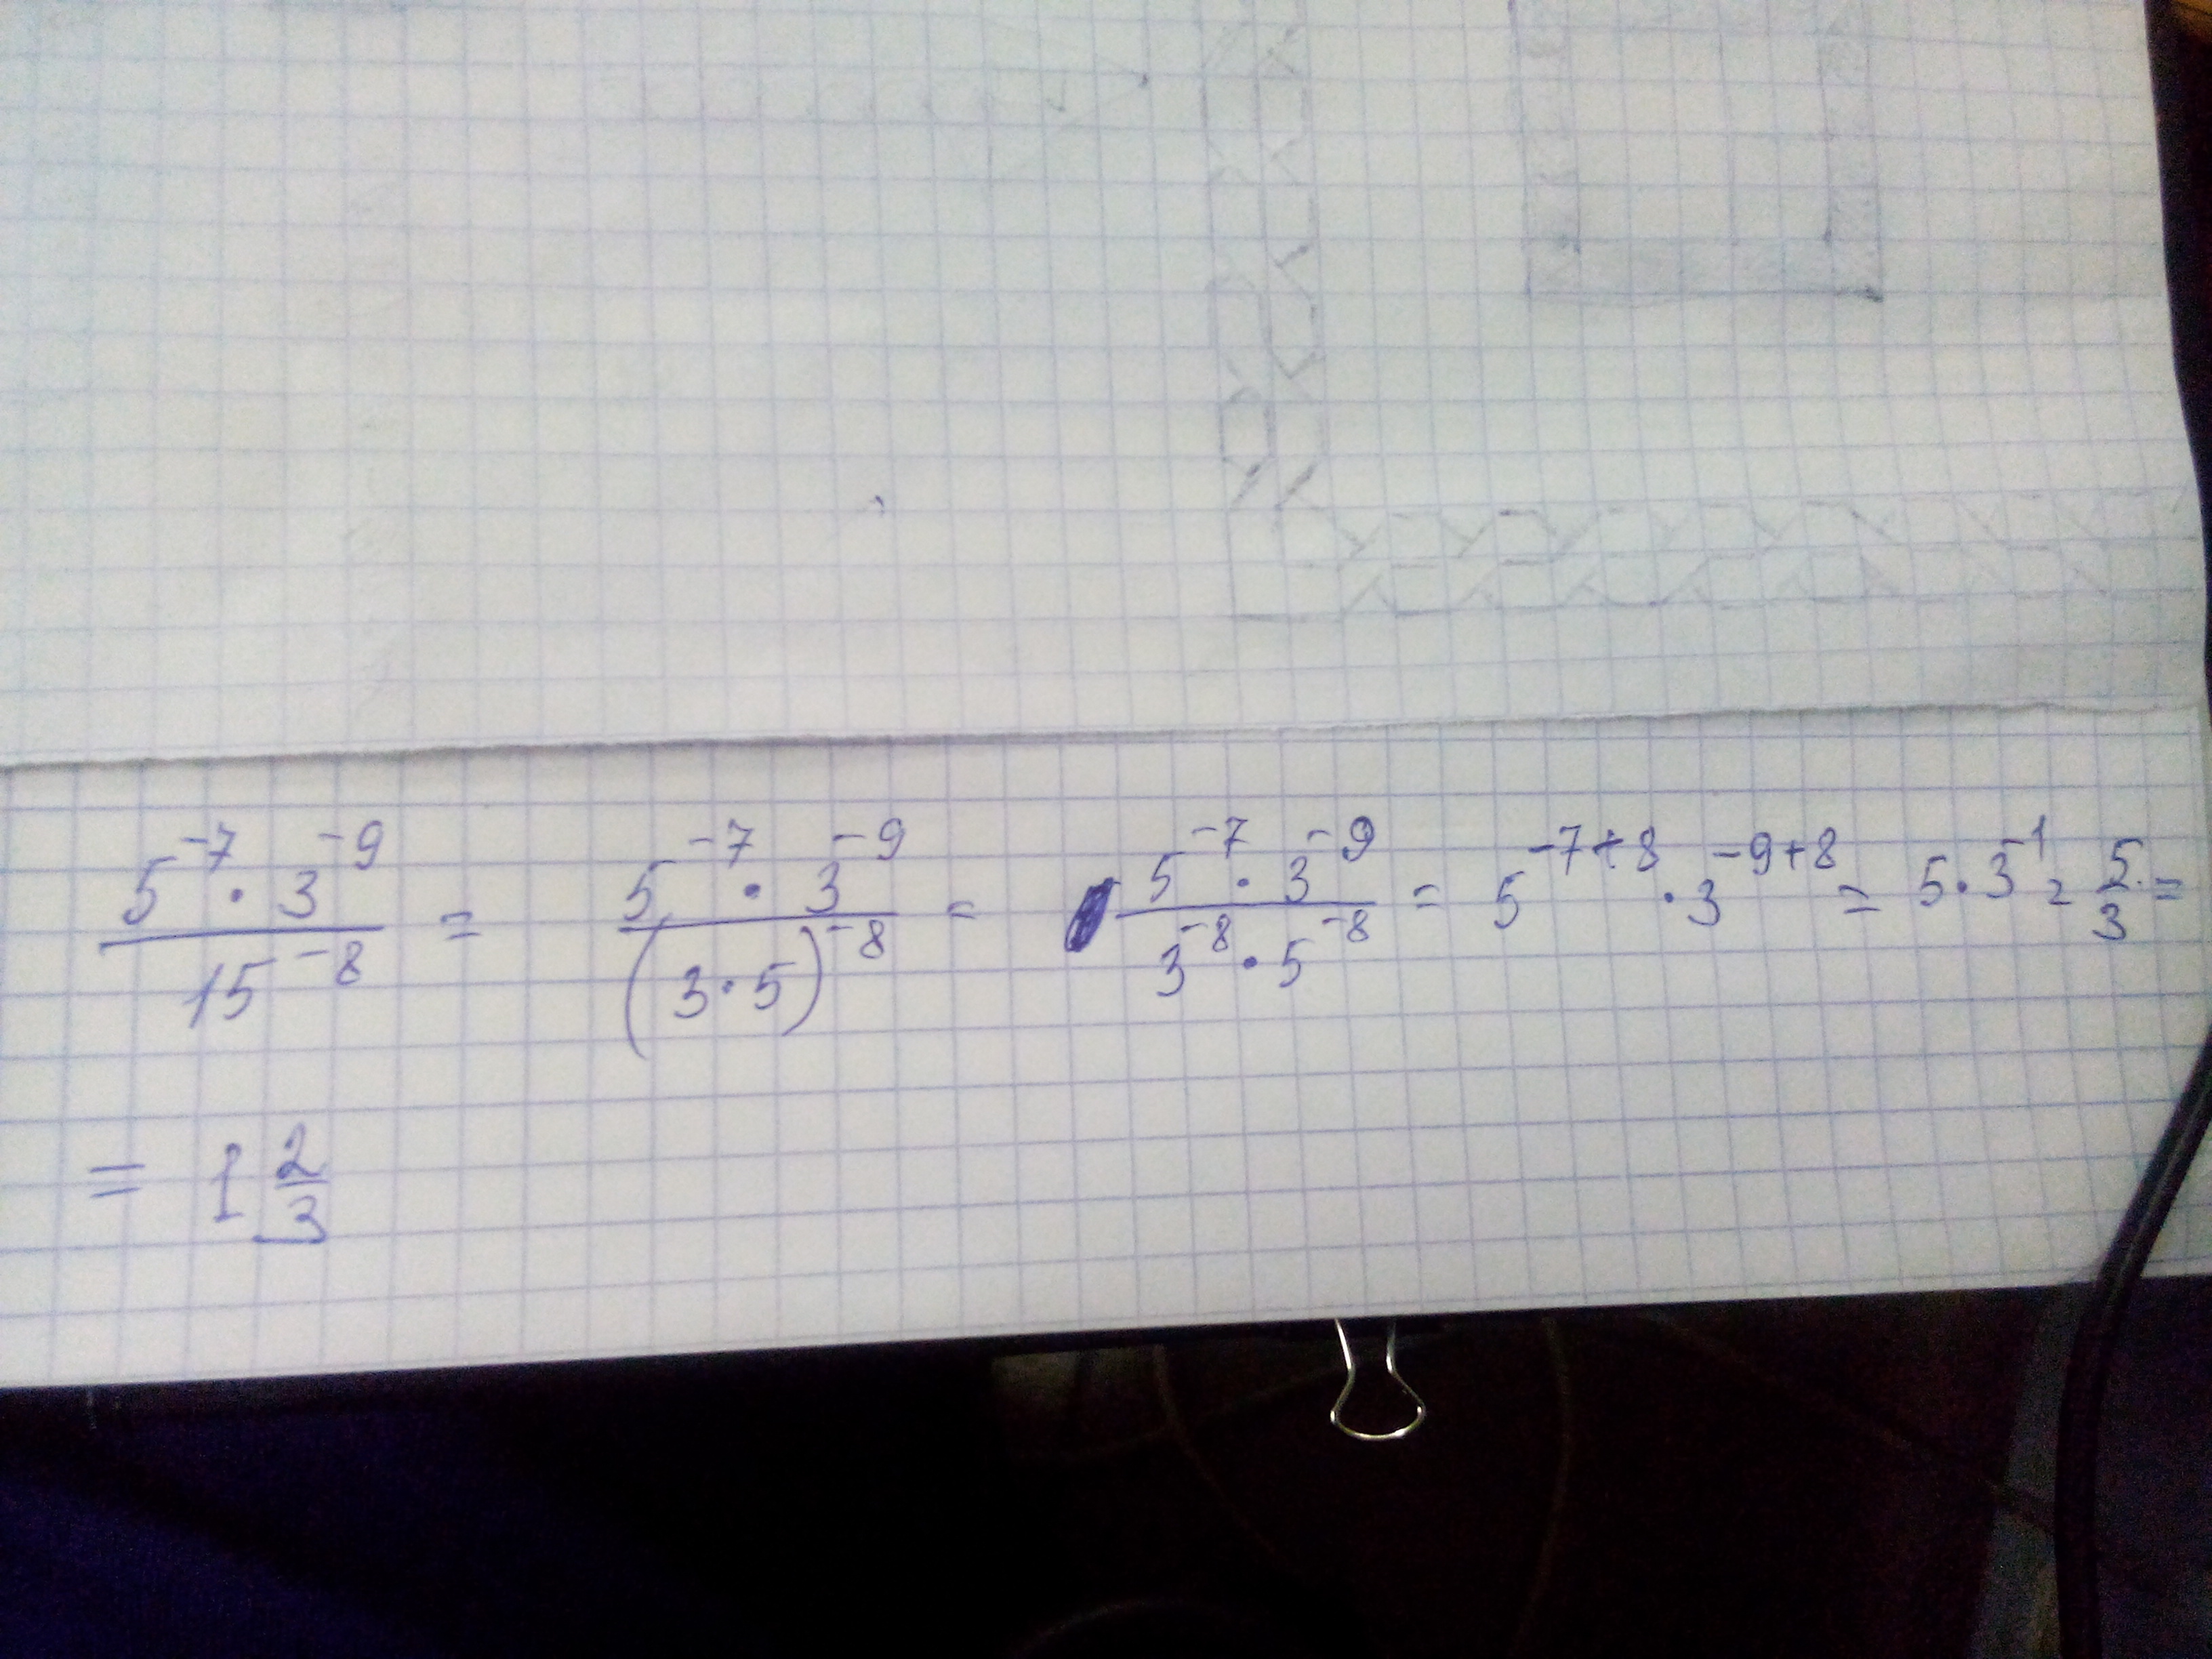 5⁻⁷ · 3⁻⁹ / 15⁻⁸ = 5⁻⁷ · 3⁻⁹ / (3·5)⁻⁸ = 5⁻⁷ · 3⁻⁹ / 3⁻⁸ · 5⁻⁸ = 5⁻⁷⁺⁸ · 3⁻⁹⁺⁸ = 5 · 3⁻¹ = 5/3 =
= 1 2/3